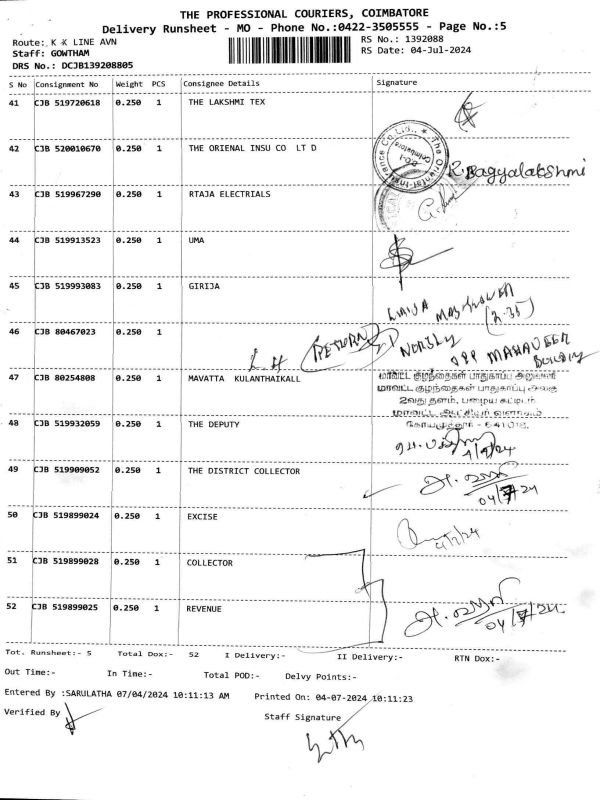 THE PROFESSIONAL COURIERS, COIMBATORE
Delivery Runsheet - MO - Phone No.:0422-3505555 - Page No.:5
Route: K K LINE AVN
RS No.: 1392088
Staff: GOWTHAM
RS Date: 04-Jul-2024
DRS No.: DCJB139208805
S No Consignment No Weight PCS Consignee Details Signature
41 CJB 519720618 0.250 1 THE LAKSHMI TEX
42 CJB 520010670 0.250 1 THE ORIENAL INSU CO LT D
R. Bagyalakshmi
43 CJB 519967290 0.250 1 RTAJA ELECTRIALS
44 CJB 519913523 0.250 1 UMA
45 CJB 519993083 0.250 1 GIRIJA
46 CJB 80467023 0.250 1
RETURN
OPP MAHAVEER
47 CJB 80254808 0.250 1 MAVATTA KULANTHAIKALL
மாவட்ட குழந்தைகள் பாதுகாப்பு அலுவலர்
மாவட்ட குழந்தைகள் பாதுகாப்பு அலகு
2வது தளம், பழைய கட்டிடம்
மாவட்ட ஆட்சியர் வளாகம்
கோயமுத்தூர் - 641 018.
48 CJB 519932059 0.250 1 THE DEPUTY
49 CJB 519909052 0.250 1 THE DISTRICT COLLECTOR
04/7/24
50 CJB 519899024 0.250 1 EXCISE
51 CJB 519899028 0.250 1 COLLECTOR
52 CJB 519899025 0.250 1 REVENUE
04/7/24
Tot. Runsheet:- 5 Total Dox:- 52 I Delivery:- II Delivery:- RTN Dox:-
Out Time:- In Time:- Total POD:- Delvy Points:-
Entered By :SARULATHA 07/04/2024 10:11:13 AM Printed On: 04-07-2024 10:11:23
Verified By
Staff Signature